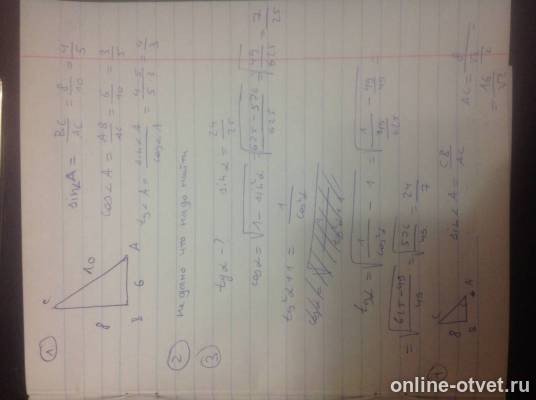 1
C
10
8
6
B A
sin∠A = BC/AC = 8/10 = 4/5
cos∠A = AB/AC = 6/10 = 3/5
tg∠A = sin∠A/cos∠A = 4·5/5·3 = 4/3
2 не дано что надо найти
3 tgα - ? sinα = 24/25
cosα = √(1 - sin²α) = √((625-576)/625) = √(49/625) = 7/25
tg²α + 1 = 1/cos²α
tgα = √(1/cos²α - 1) =
= √((625-49)/49) = √(576/49) = 24/7
C
8
B A
sin∠A = CB/AC
AC =
online-otvet.ru